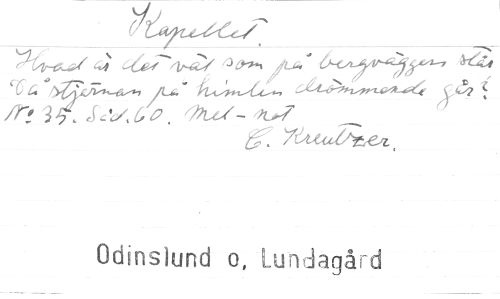 Kapellet.
Hvad är det väl som på bergväggen står
Då stjärnan på himlen drömmande går?
No 35. Sid. 60. Mel-not
C. Kreutzer.
Odinslund o, Lundagård